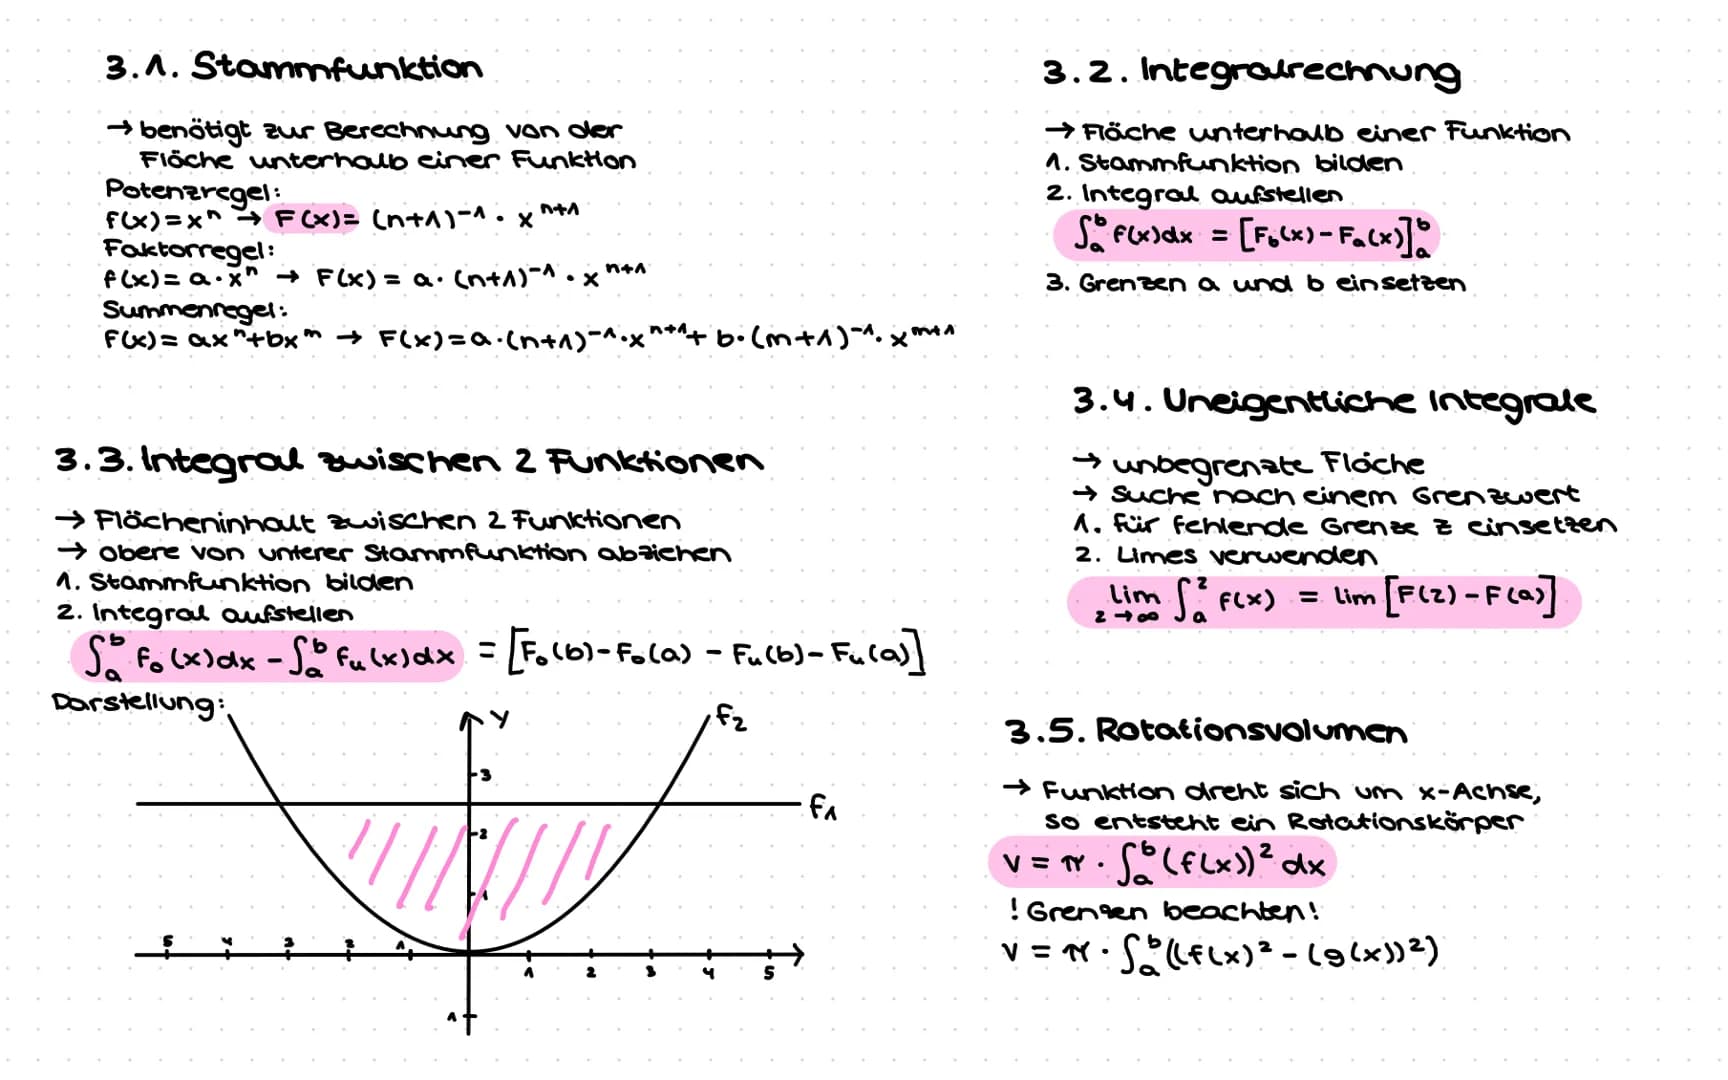 3.1. Stammfunktion
→ benötigt zur Berechnung von der
Fläche unterhalb einer Funktion
Potenzregel:
f(x)=xⁿ → F(x)= (n+1)⁻¹ · xⁿ⁺¹
Faktorregel:
f(x)= a·xⁿ → F(x) = a· (n+1)⁻¹ · xⁿ⁺¹
Summenregel:
f(x)= axⁿ+bxᵐ → F(x)=a·(n+1)⁻¹·xⁿ⁺¹+ b·(m+1)⁻¹·xᵐ⁺¹
3.2. Integralrechnung
→ Fläche unterhalb einer Funktion
1. Stammfunktion bilden
2. Integral aufstellen
∫ₐᵇ f(x)dx = [F_b(x)-Fₐ(x)]ₐᵇ
3. Grenzen a und b einsetzen
3.3. Integral zwischen 2 Funktionen
→ Flächeninhalt zwischen 2 Funktionen
→ obere von unterer Stammfunktion abziehen
1. Stammfunktion bilden
2. Integral aufstellen
∫ₐᵇ fₒ(x)dx - ∫ₐᵇ fᵤ(x)dx = [Fₒ(b)-Fₒ(a) - Fᵤ(b)-Fᵤ(a)]
Darstellung:
y
f₂
3
f₁
2
1
5 4 3 2 1
1 2 3 4 5
1
3.4. Uneigentliche Integrale
→ unbegrenzte Fläche
→ Suche nach einem Grenzwert
1. für fehlende Grenze z einsetzen
2. Limes verwenden
lim z→∞ ∫ₐᶻ f(x) = lim [F(z)-F(a)]
3.5. Rotationsvolumen
→ Funktion dreht sich um x-Achse,
so entsteht ein Rotationskörper
V = π · ∫ₐᵇ (f(x))² dx
! Grenzen beachten!
V = π · ∫ₐᵇ ((f(x)² - (g(x))²)